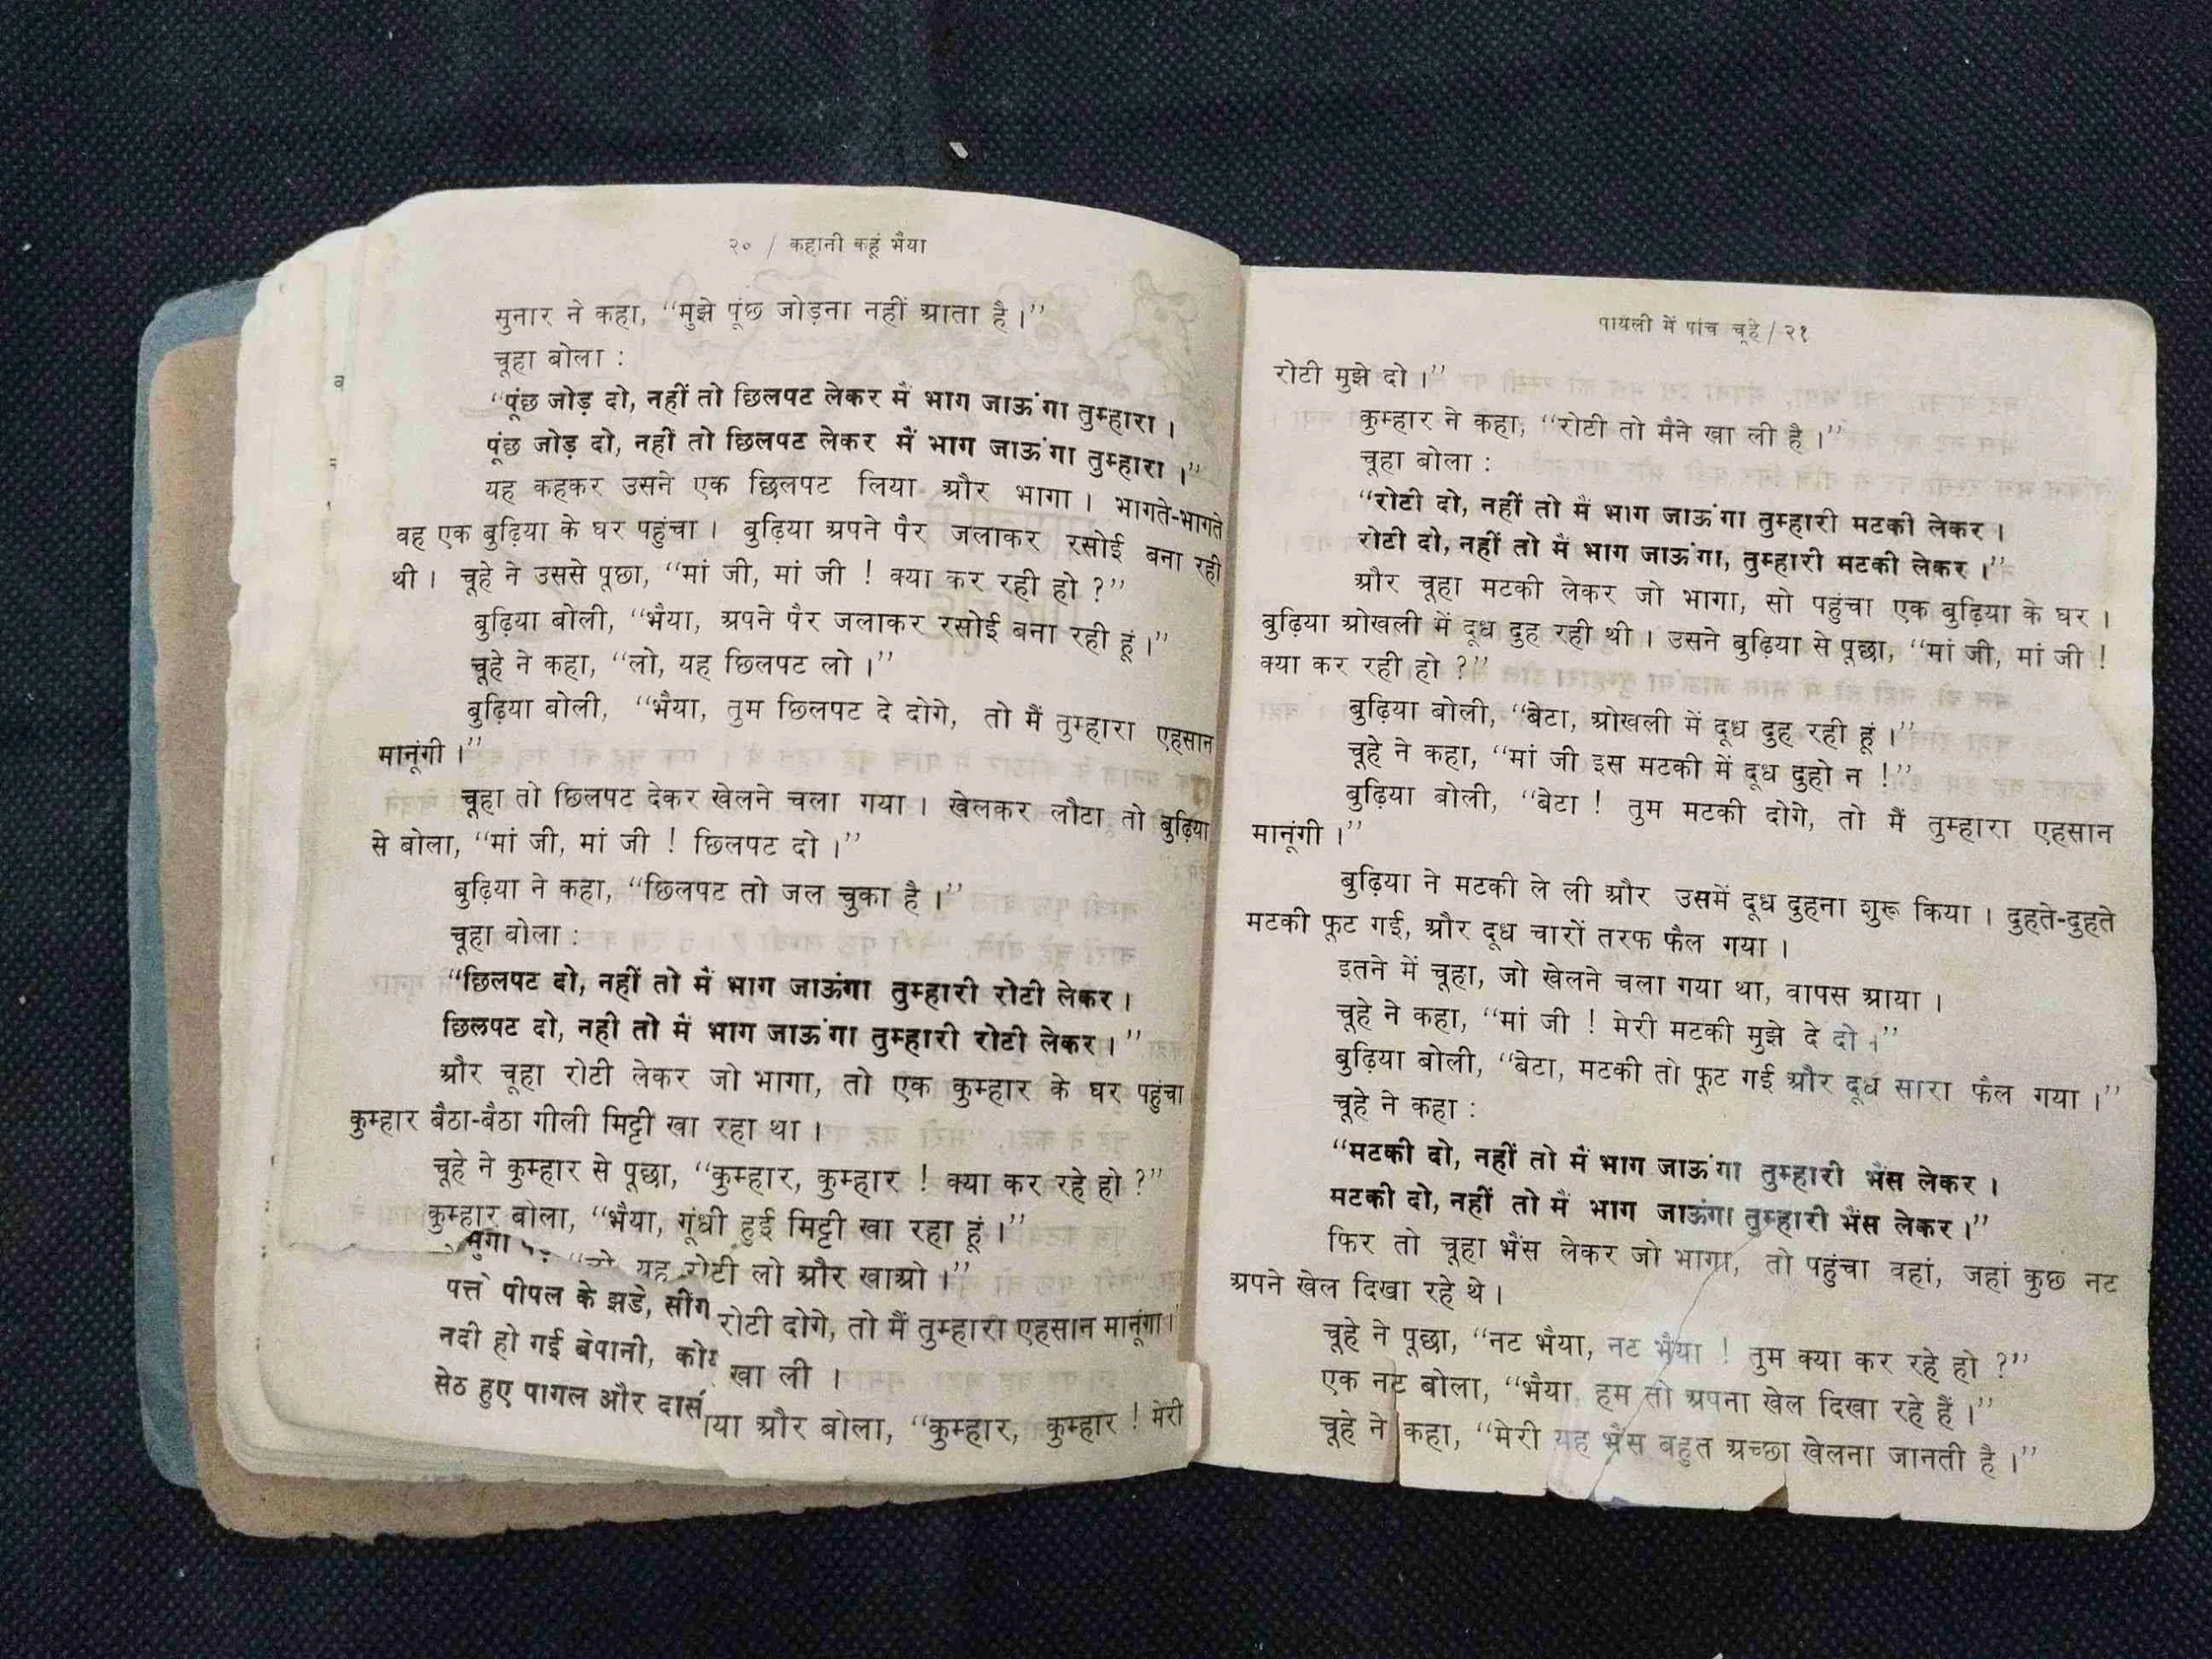 २० / कहानी कहूं भैया
सुनार ने कहा, “मुझे पूंछ जोड़ना नहीं आता है।”
चूहा बोला :
“पूंछ जोड़ दो, नहीं तो छिलपट लेकर मैं भाग जाऊंगा तुम्हारा ।
पूंछ जोड़ दो, नहीं तो छिलपट लेकर मैं भाग जाऊंगा तुम्हारा ।”
यह कहकर उसने एक छिलपट लिया और भागा । भागते-भागते
वह एक बुढ़िया के घर पहुंचा । बुढ़िया अपने पैर जलाकर रसोई बना रही
थी । चूहे ने उससे पूछा, “मां जी, मां जी ! क्या कर रही हो ?”
बुढ़िया बोली, “भैया, अपने पैर जलाकर रसोई बना रही हूं ।”
चूहे ने कहा, “लो, यह छिलपट लो ।”
बुढ़िया बोली, “भैया, तुम छिलपट दे दोगे, तो मैं तुम्हारा एहसान
मानूंगी ।”
चूहा तो छिलपट देकर खेलने चला गया । खेलकर लौटा तो बुढ़िया
से बोला, “मां जी, मां जी ! छिलपट दो ।”
बुढ़िया ने कहा, “छिलपट तो जल चुका है ।”
चूहा बोला :
“छिलपट दो, नहीं तो मैं भाग जाऊंगा तुम्हारी रोटी लेकर ।
छिलपट दो, नहीं तो मैं भाग जाऊंगा तुम्हारी रोटी लेकर ।”
और चूहा रोटी लेकर जो भागा, तो एक कुम्हार के घर पहुंचा
कुम्हार बैठा-बैठा गीली मिट्टी खा रहा था ।
चूहे ने कुम्हार से पूछा, “कुम्हार, कुम्हार ! क्या कर रहे हो ?”
कुम्हार बोला, “भैया, गूंधी हुई मिट्टी खा रहा हूं ।”
यह रोटी लो और खाओ ।”
पत्ते पीपल के झड़े, सींग
रोटी दोगे, तो मैं तुम्हारा एहसान मानूंगा ।
नदी हो गई बेपानी,
खा ली ।
सेठ हुए पागल और
और बोला, “कुम्हार, कुम्हार ! मेरी
पायली में पांच चूहे / २१
रोटी मुझे दो ।”
कुम्हार ने कहा, “रोटी तो मैने खा ली है ।”
चूहा बोला :
“रोटी दो, नहीं तो मैं भाग जाऊंगा तुम्हारी मटकी लेकर ।
रोटी दो, नहीं तो मैं भाग जाऊंगा, तुम्हारी मटकी लेकर ।”
और चूहा मटकी लेकर जो भागा, सो पहुंचा एक बुढ़िया के घर ।
बुढ़िया ओखली में दूध दुह रही थी । उसने बुढ़िया से पूछा, “मां जी, मां जी !
क्या कर रही हो ?”
बुढ़िया बोली, “बेटा, ओखली में दूध दुह रही हूं ।”
चूहे ने कहा, “मां जी इस मटकी में दूध दुहो न !”
बुढ़िया बोली, “बेटा ! तुम मटकी दोगे, तो मैं तुम्हारा एहसान
मानूंगी ।”
बुढ़िया ने मटकी ले ली और उसमें दूध दुहना शुरू किया । दुहते-दुहते
मटकी फूट गई, और दूध चारों तरफ फैल गया ।
इतने में चूहा, जो खेलने चला गया था, वापस आया ।
चूहे ने कहा, “मां जी ! मेरी मटकी मुझे दे दो ।”
बुढ़िया बोली, “बेटा, मटकी तो फूट गई और दूध सारा फैल गया ।”
चूहे ने कहा :
“मटकी दो, नहीं तो मैं भाग जाऊंगा तुम्हारी भैंस लेकर ।
मटकी दो, नहीं तो मैं भाग जाऊंगा तुम्हारी भैंस लेकर ।”
फिर तो चूहा भैंस लेकर जो भागा, तो पहुंचा वहां, जहां कुछ नट
अपने खेल दिखा रहे थे ।
चूहे ने पूछा, “नट भैया, नट भैया ! तुम क्या कर रहे हो ?”
एक नट बोला, “भैया, हम तो अपना खेल दिखा रहे हैं ।”
चूहे ने कहा, “मेरी यह भैंस बहुत अच्छा खेलना जानती है ।”